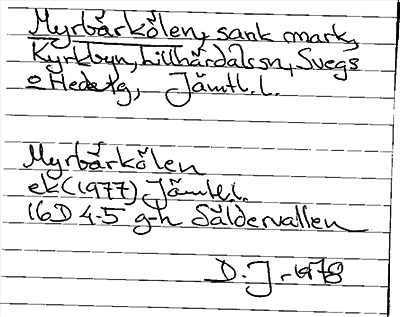 Myrbärkölen, sank mark,
Kyrkbyn, Lillhärdals sn, Svegs
o Hede tg, Jämtl.l.
Myrbärkölen
ek (1977) Jämtl.l.
16D 4-5 g-h Säldervallen
D.J. 1978